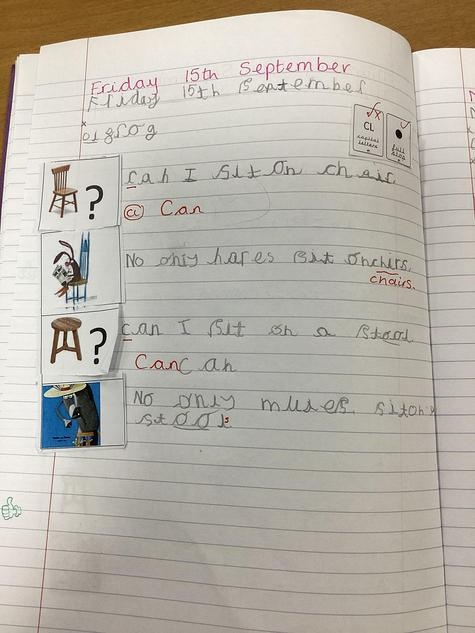 Friday 15th September
Friday 15th September
oi frog
CL
capital letters
full stop
can I sit on chair
@ Can
No only hares sit onchirs.
chairs.
can I sit on a stool
Can Can
No only mules sit on
stools